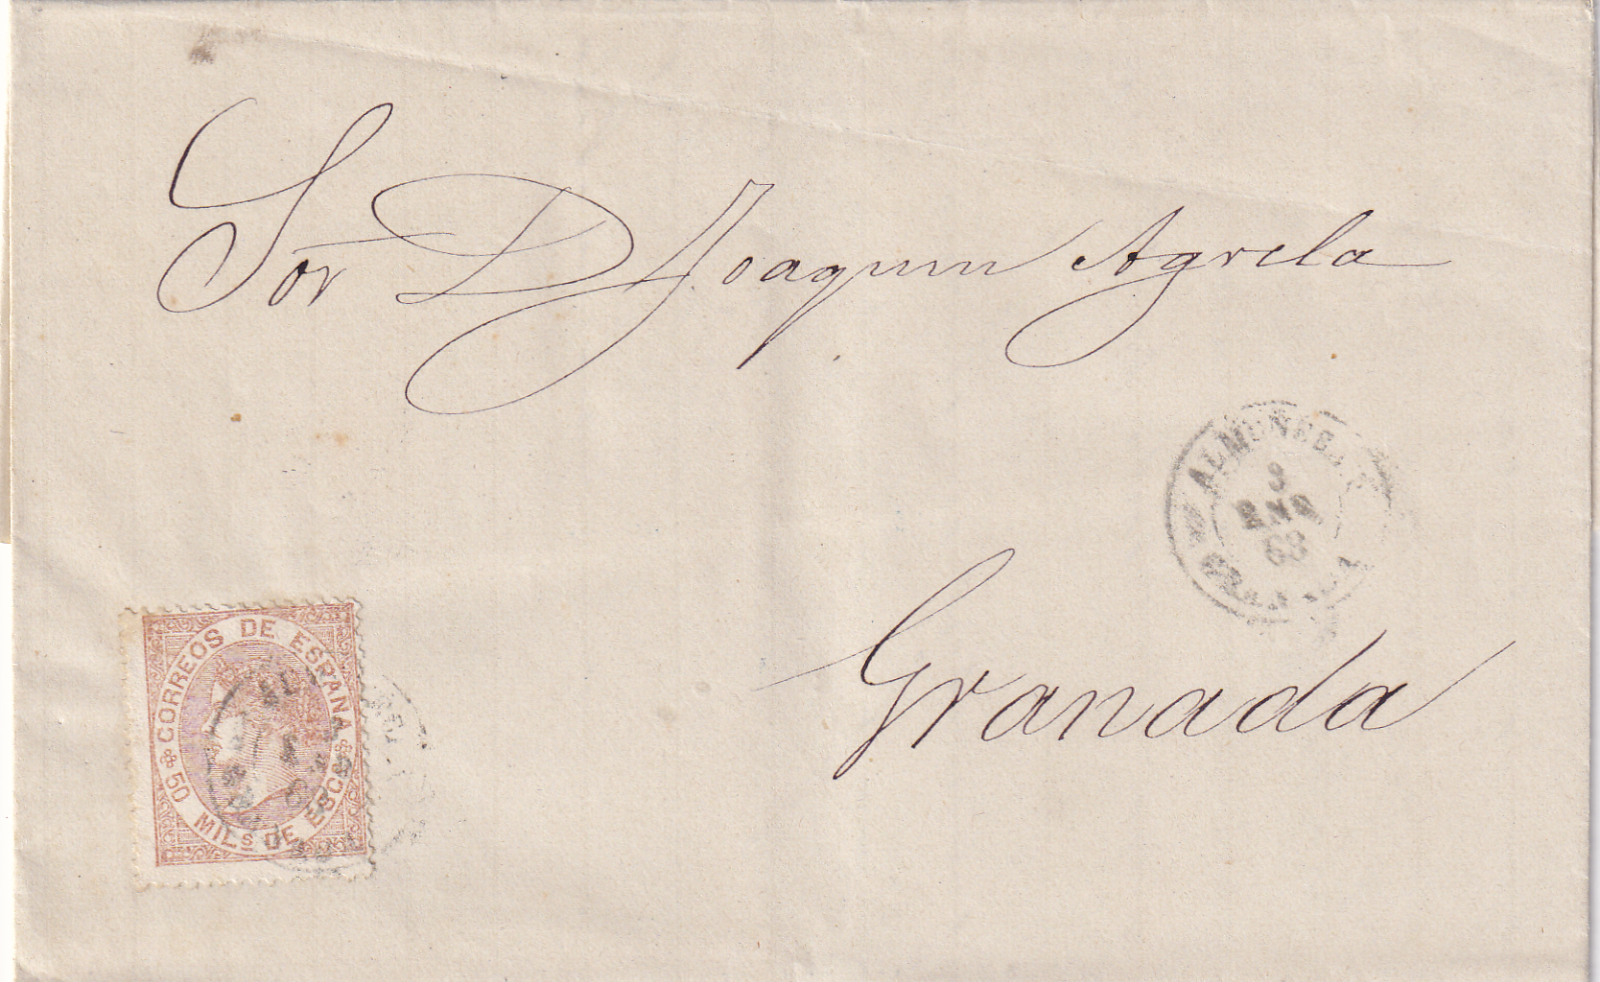 Sor D Joaquin Agrela
ALMUÑECA
3
ENE
68
Granada
CORREOS DE ESPAÑA
50 MILs DE ESCO